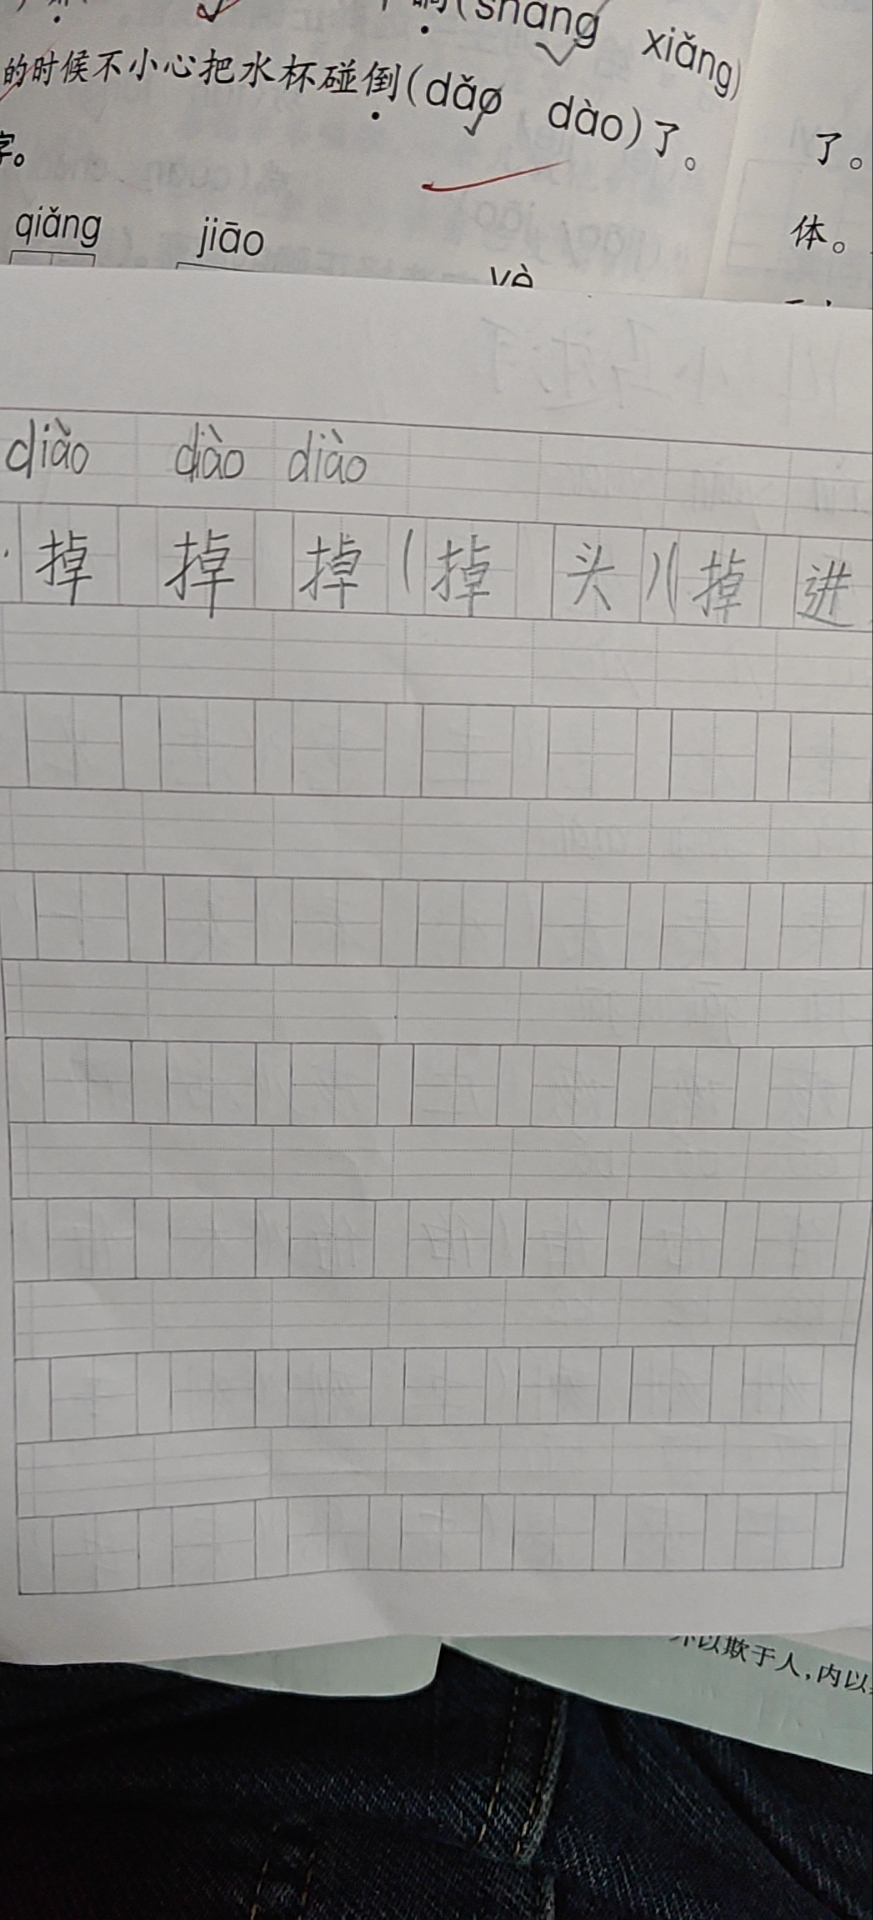 (shǎng xiǎng)
的时候不小心把水杯碰倒(dǎo dào)了。
了。
字。
体。
qiǎng jiāo yè
diào dào diào
掉 掉 掉(掉 头)(掉 进
不以欺于人,内以